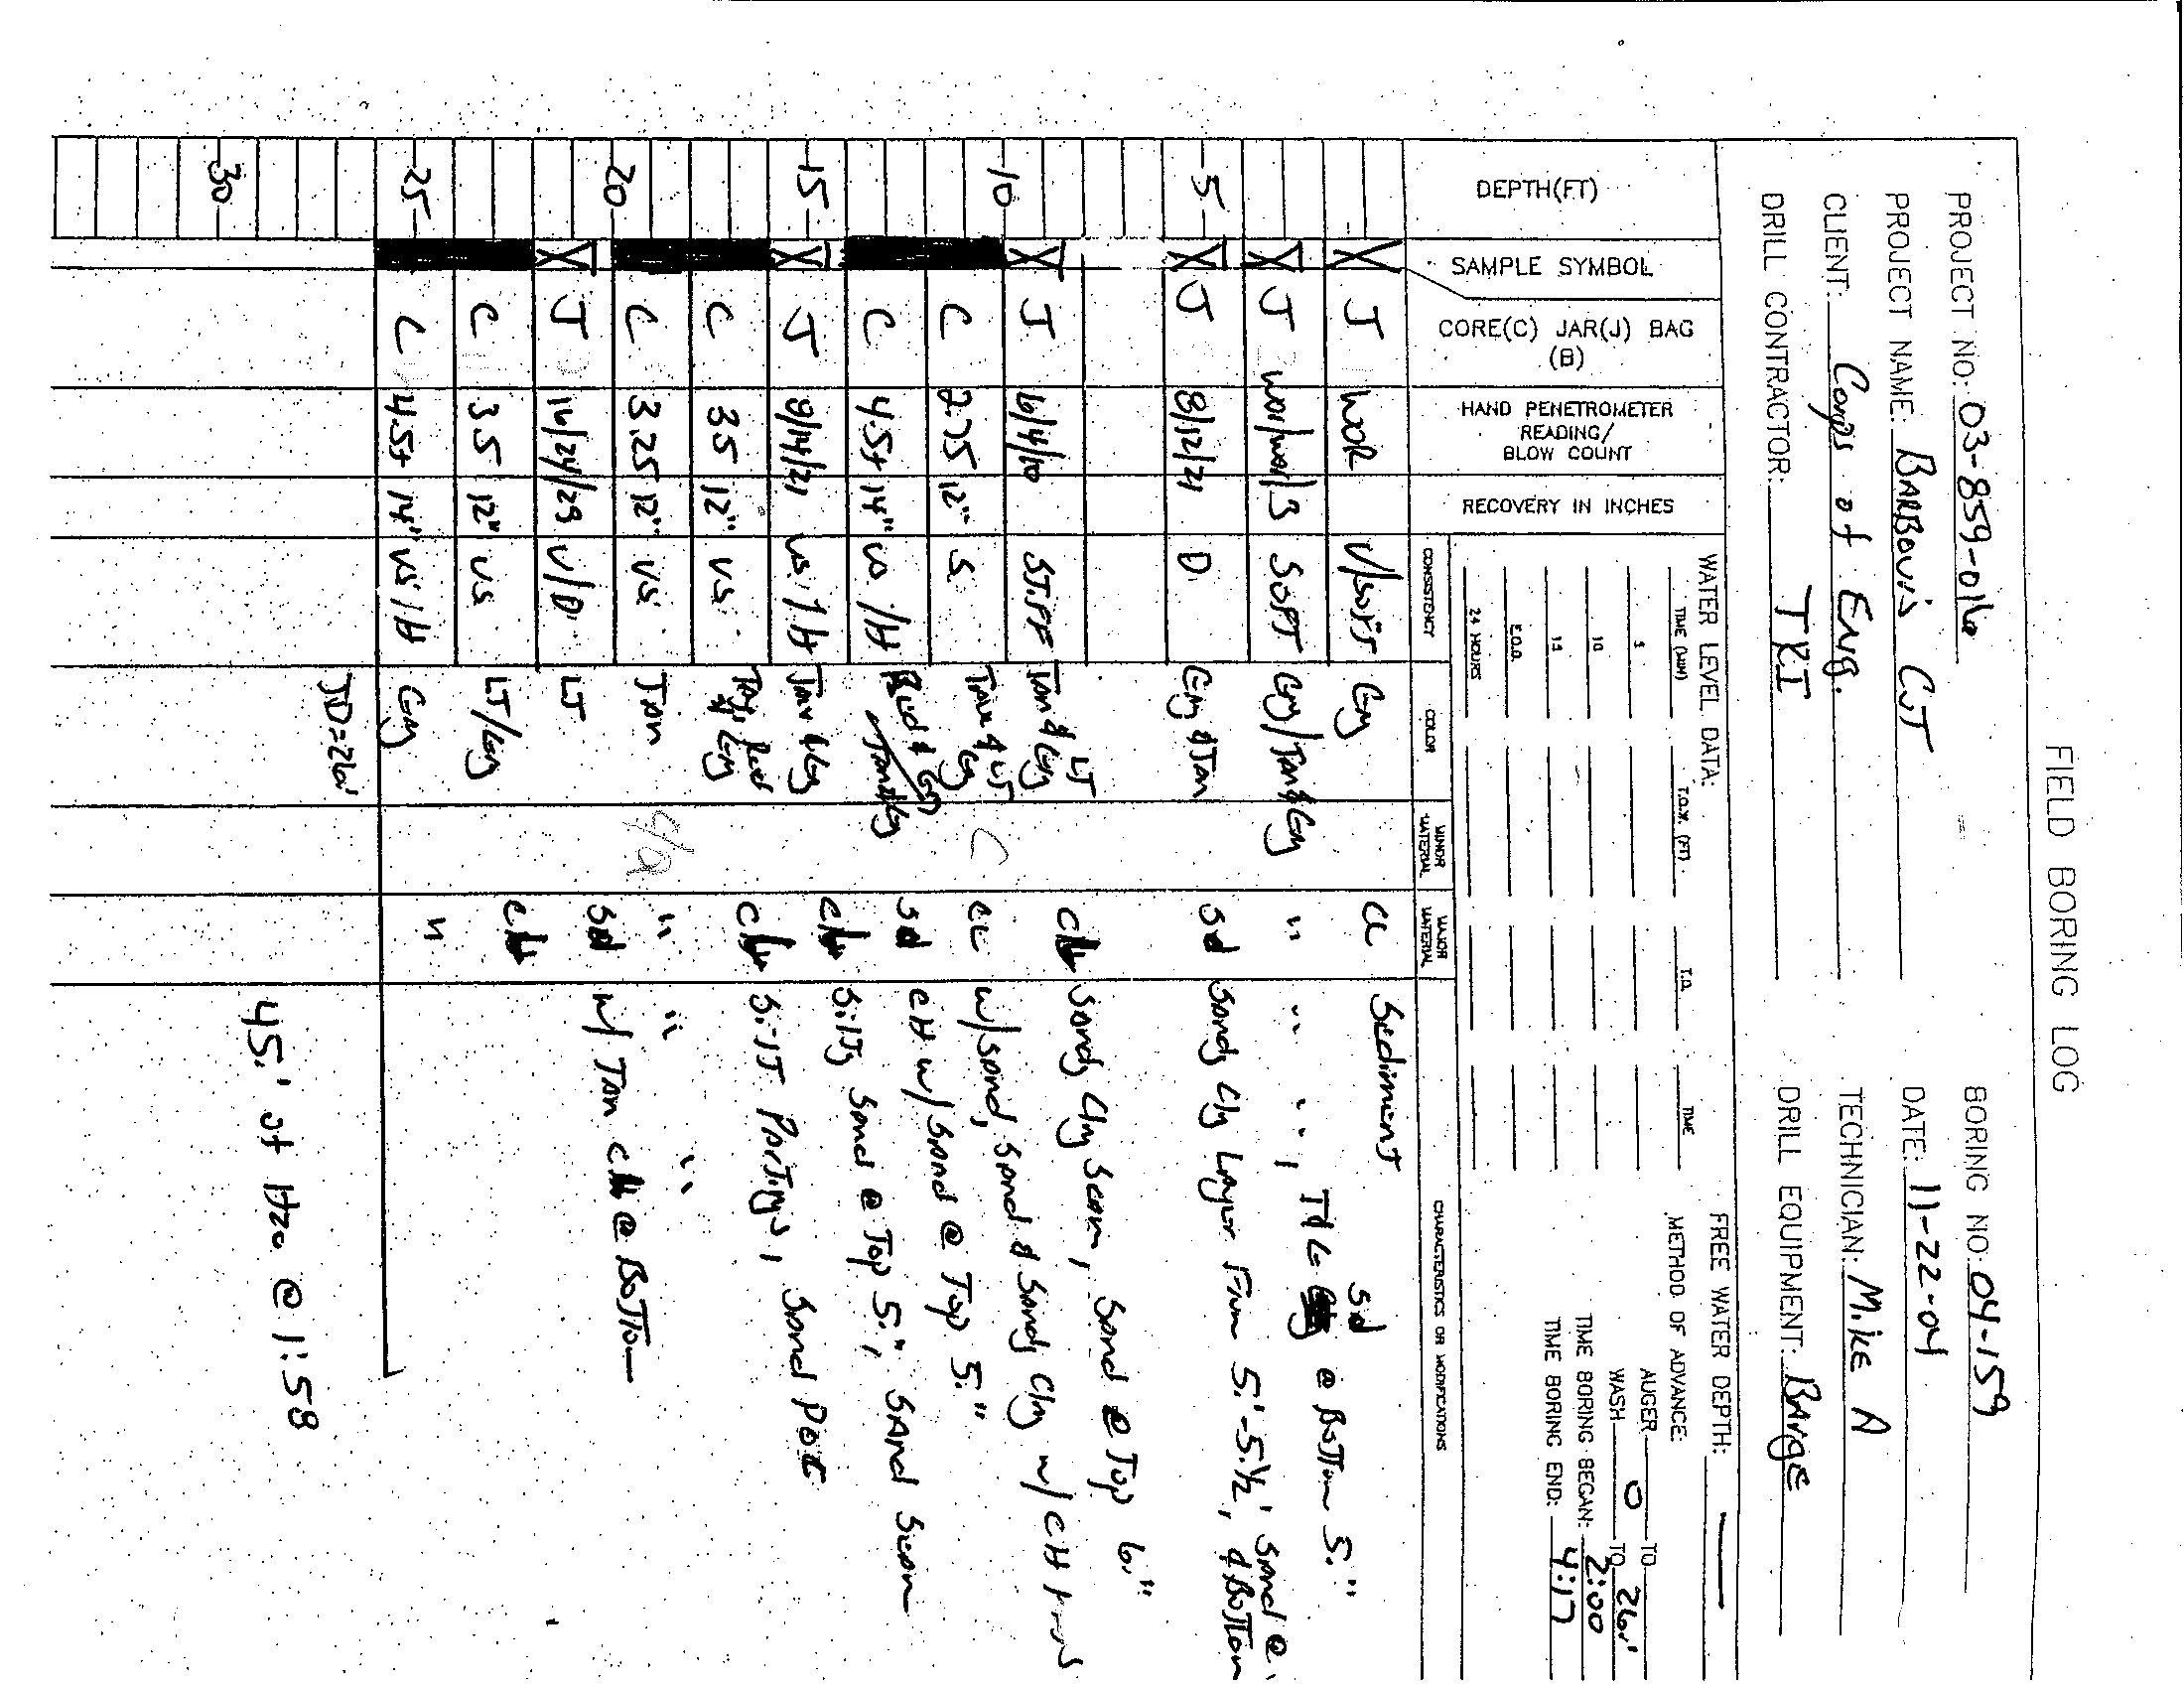 FIELD BORING LOG
PROJECT NO: 03-859-016 BORING NO: 04-159
PROJECT NAME: BARBOUR'S CUT DATE: 11-22-04
CLIENT: Corps of Eng. TECHNICIAN: Mike A
DRILL CONTRACTOR: TRI DRILL EQUIPMENT: BARGE
WATER LEVEL DATA: FREE WATER DEPTH: —
TIME (MIN) T.O.W. (FT) T.D. TIME METHOD OF ADVANCE:
5 AUGER TO
10 WASH 0 TO 26'
15 TIME BORING BEGAN: 2:00
E.O.D. TIME BORING END: 4:17
24 HOURS
DEPTH(FT)
SAMPLE SYMBOL
CORE(C) JAR(J) BAG (B)
HAND PENETROMETER READING/ BLOW COUNT
RECOVERY IN INCHES
CONSISTENCY
COLOR
MINOR MATERIAL
MAJOR MATERIAL
CHARACTERISTICS OR MODIFICATIONS
J WOR V/SOFT Gry CL Sediment
J WOR/WOR/3 SOFT Gry/Tan & Gry " " " , Sd @ BOTTOM 5."
5 J 8/12/21 D Gry & Tan Sd Sandy Cly Layer From 5.'-5.1/2', Sand @ & BOTTOM
10 J 6/4/10 STIFF Tan & LT Gry Sandy Cly Seam, Sand @ Top 6."
C 2.75 12" S Tan & LT Gry CL w/Sand, Sand & Sandy Cly w/CH
C 4.5+ 14" VS/H Red & Sd CH w/Sand @ Top 5."
15 J 9/14/21 VS/H Tan & Gry Silty Sand @ Top 5.", SAND Seam
C 3.5 12" VS Silt Partings, Sand POC
20 C 3.25 12" VS Tan " " "
J 16/24/29 V/D LT Sd w/ Tan @ BOTTOM
C 3.5 12" VS LT/Gry
25 C 4.5+ 14" VS/H Gry "
TD=26'
30
45.' of H2O @ 1:58